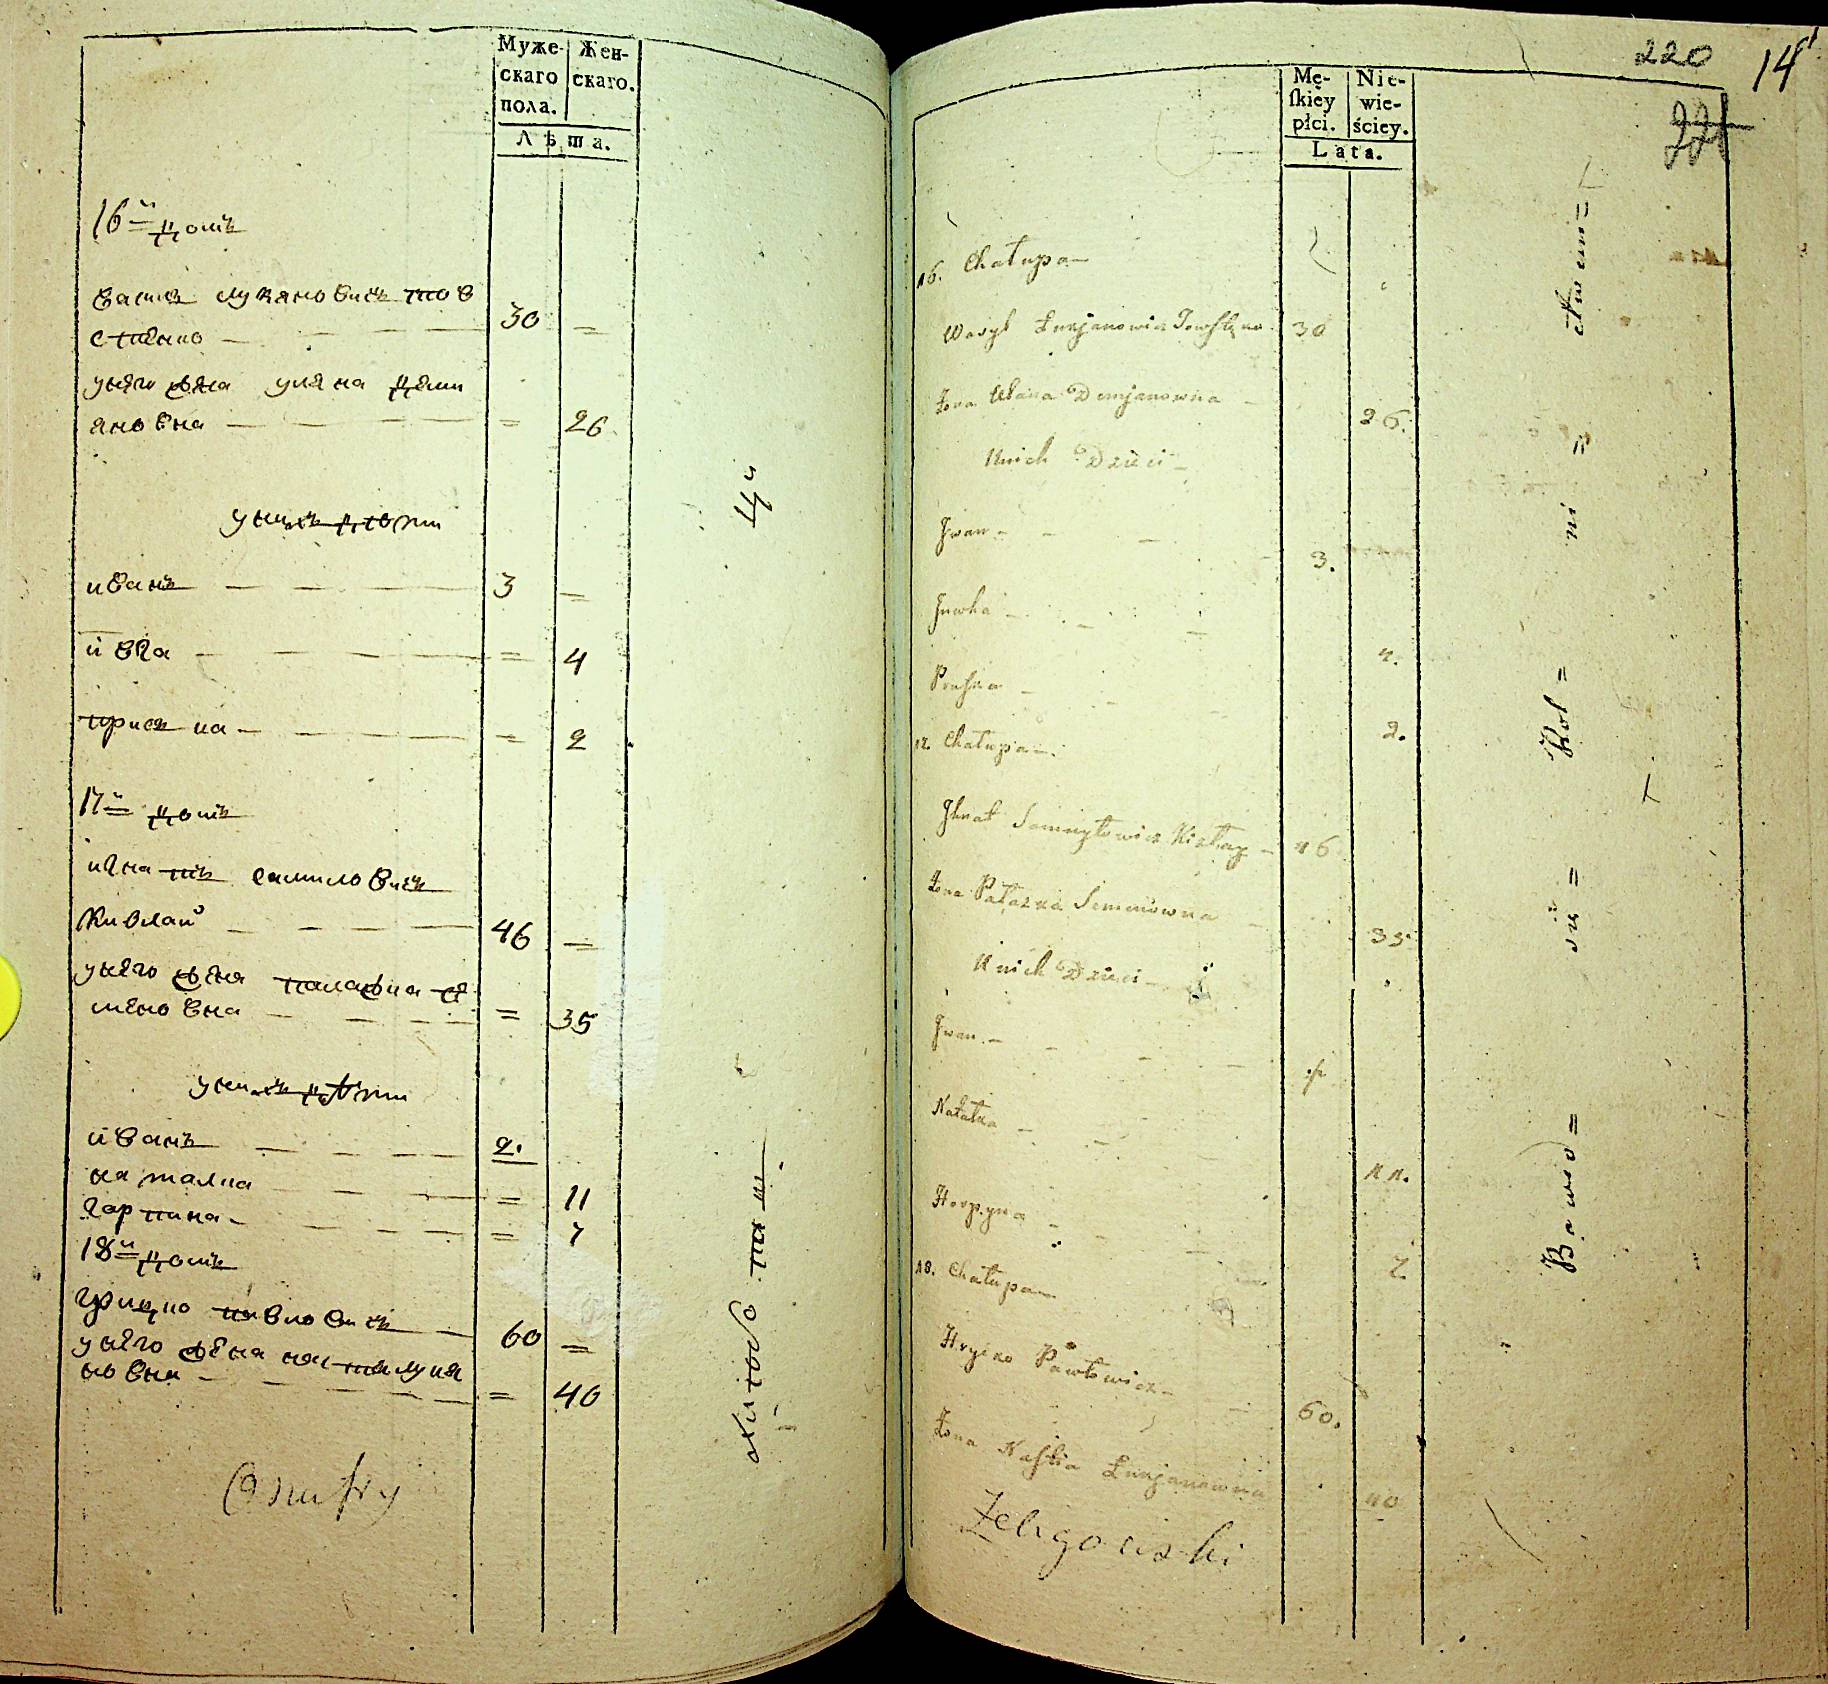 Муже-
скаго
пола.
Жен-
скаго.
Лѣта.
16й домъ
василь лукяновичъ тов
стенко 30 =
у него жена уляна деми
яновна = 26
у нихъ дѣти
иванъ 3 =
ивка = 4
приська = 2
17й домъ
игнатъ самиловичъ
кивлай 46 =
у него жена палажка се
меновна = 35
у нихъ дѣти
иванъ 2.
наталка = 11
гарпина = 7
18й домъ
грицко павловичъ 60 =
у него жена настя лукя
новна = 40
220 14
221
Mę-
skiey
płci.
Nie-
wie-
ściey.
Lata.
16. Chałupa
Wasyl Łukjanowicz 30
Żona Ulana Demjanowna 26.
U nich Dzieci
Jwan 3.
Juwka 4.
Praska 2.
17. Chałupa
Jhnat Samuyłowicz 46
Żona Pałazka Semenowna 35
U nich Dzieci
Jwan
Natałka 11.
Horpyna 7
18. Chałupa
Hrycko Pawłowicz 60.
Żona Nastia Łukjanowna 40